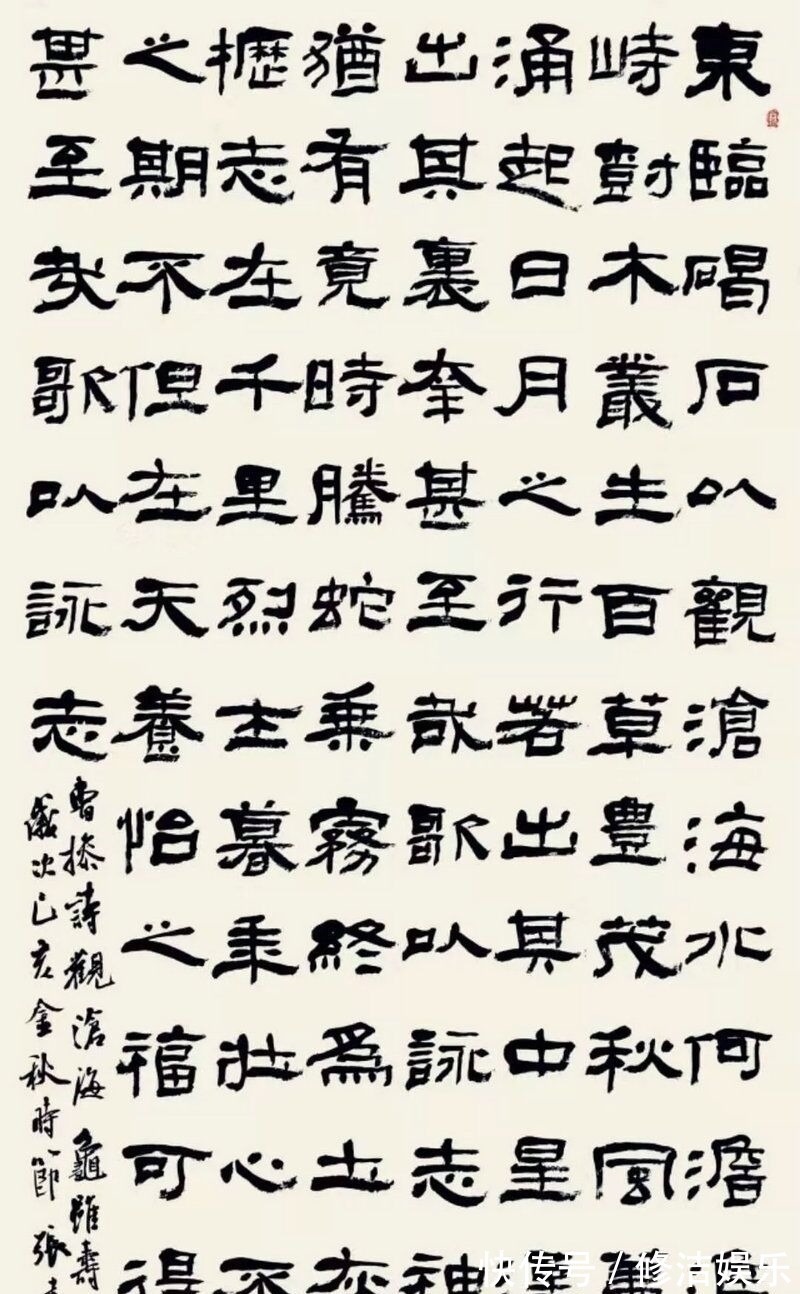 東臨碣石以觀滄海水何澹
峙樹木叢生百草豐茂秋風
涌起日月之行若出其中星
出其裏幸甚至哉歌以詠志神
猶有竟時騰蛇乘霧終為土灰
櫪志在千里烈士暮年壯心不
之期不但在天養怡之福可得
甚至哉歌以詠志
曹操詩觀滄海 龜雖壽
歲次己亥金秋時節 張
快传号/修洁娱乐